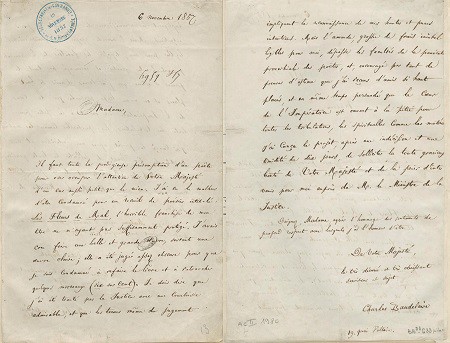 6 novembre 1857
Madame,
Il faut toute la prodigieuse présomption d'un poète
pour oser occuper l'attention de Votre Majesté
d'un cas aussi petit que le mien. J'ai eu le malheur
d'être condamné pour un recueil de poésies intitulé:
Les Fleurs du Mal, l'horrible franchise de mon
titre ne m'ayant pas suffisamment protégé. J'avais
cru faire une belle et grande œuvre, surtout une
œuvre claire; elle a été jugée assez obscure pour que
je sois condamné à refaire le livre et à retrancher
quelques morceaux (six sur cent). Je dois dire que
j'ai été traité par la Justice avec une courtoisie
admirable, et que les termes mêmes du jugement
impliquent la reconnaissance de mes hautes et pures
intentions. Mais l'amende, grossie de frais inintel-
ligibles pour moi, dépasse les facultés de la pauvreté
proverbiale des poètes, et, encouragé par tant de
preuves d'estime que j'ai reçues d'amis si haut
placés, et en même temps persuadé que le Cœur
de l'Impératrice est ouvert à la pitié pour
toutes les tribulations, les spirituelles comme les matérielles,
j'ai conçu le projet, après une indécision et une
timidité de dix jours, de solliciter la toute gracieuse
bonté de Votre Majesté et de la prier d'inter-
venir pour moi auprès de M. le Ministre de la
Justice.
Daignez, Madame, agréer l'hommage des sentiments de
profond respect avec lesquels j'ai l'honneur d'être
De Votre Majesté,
le très dévoué et très obéissant
serviteur et sujet,
Charles Baudelaire
19, quai Voltaire.